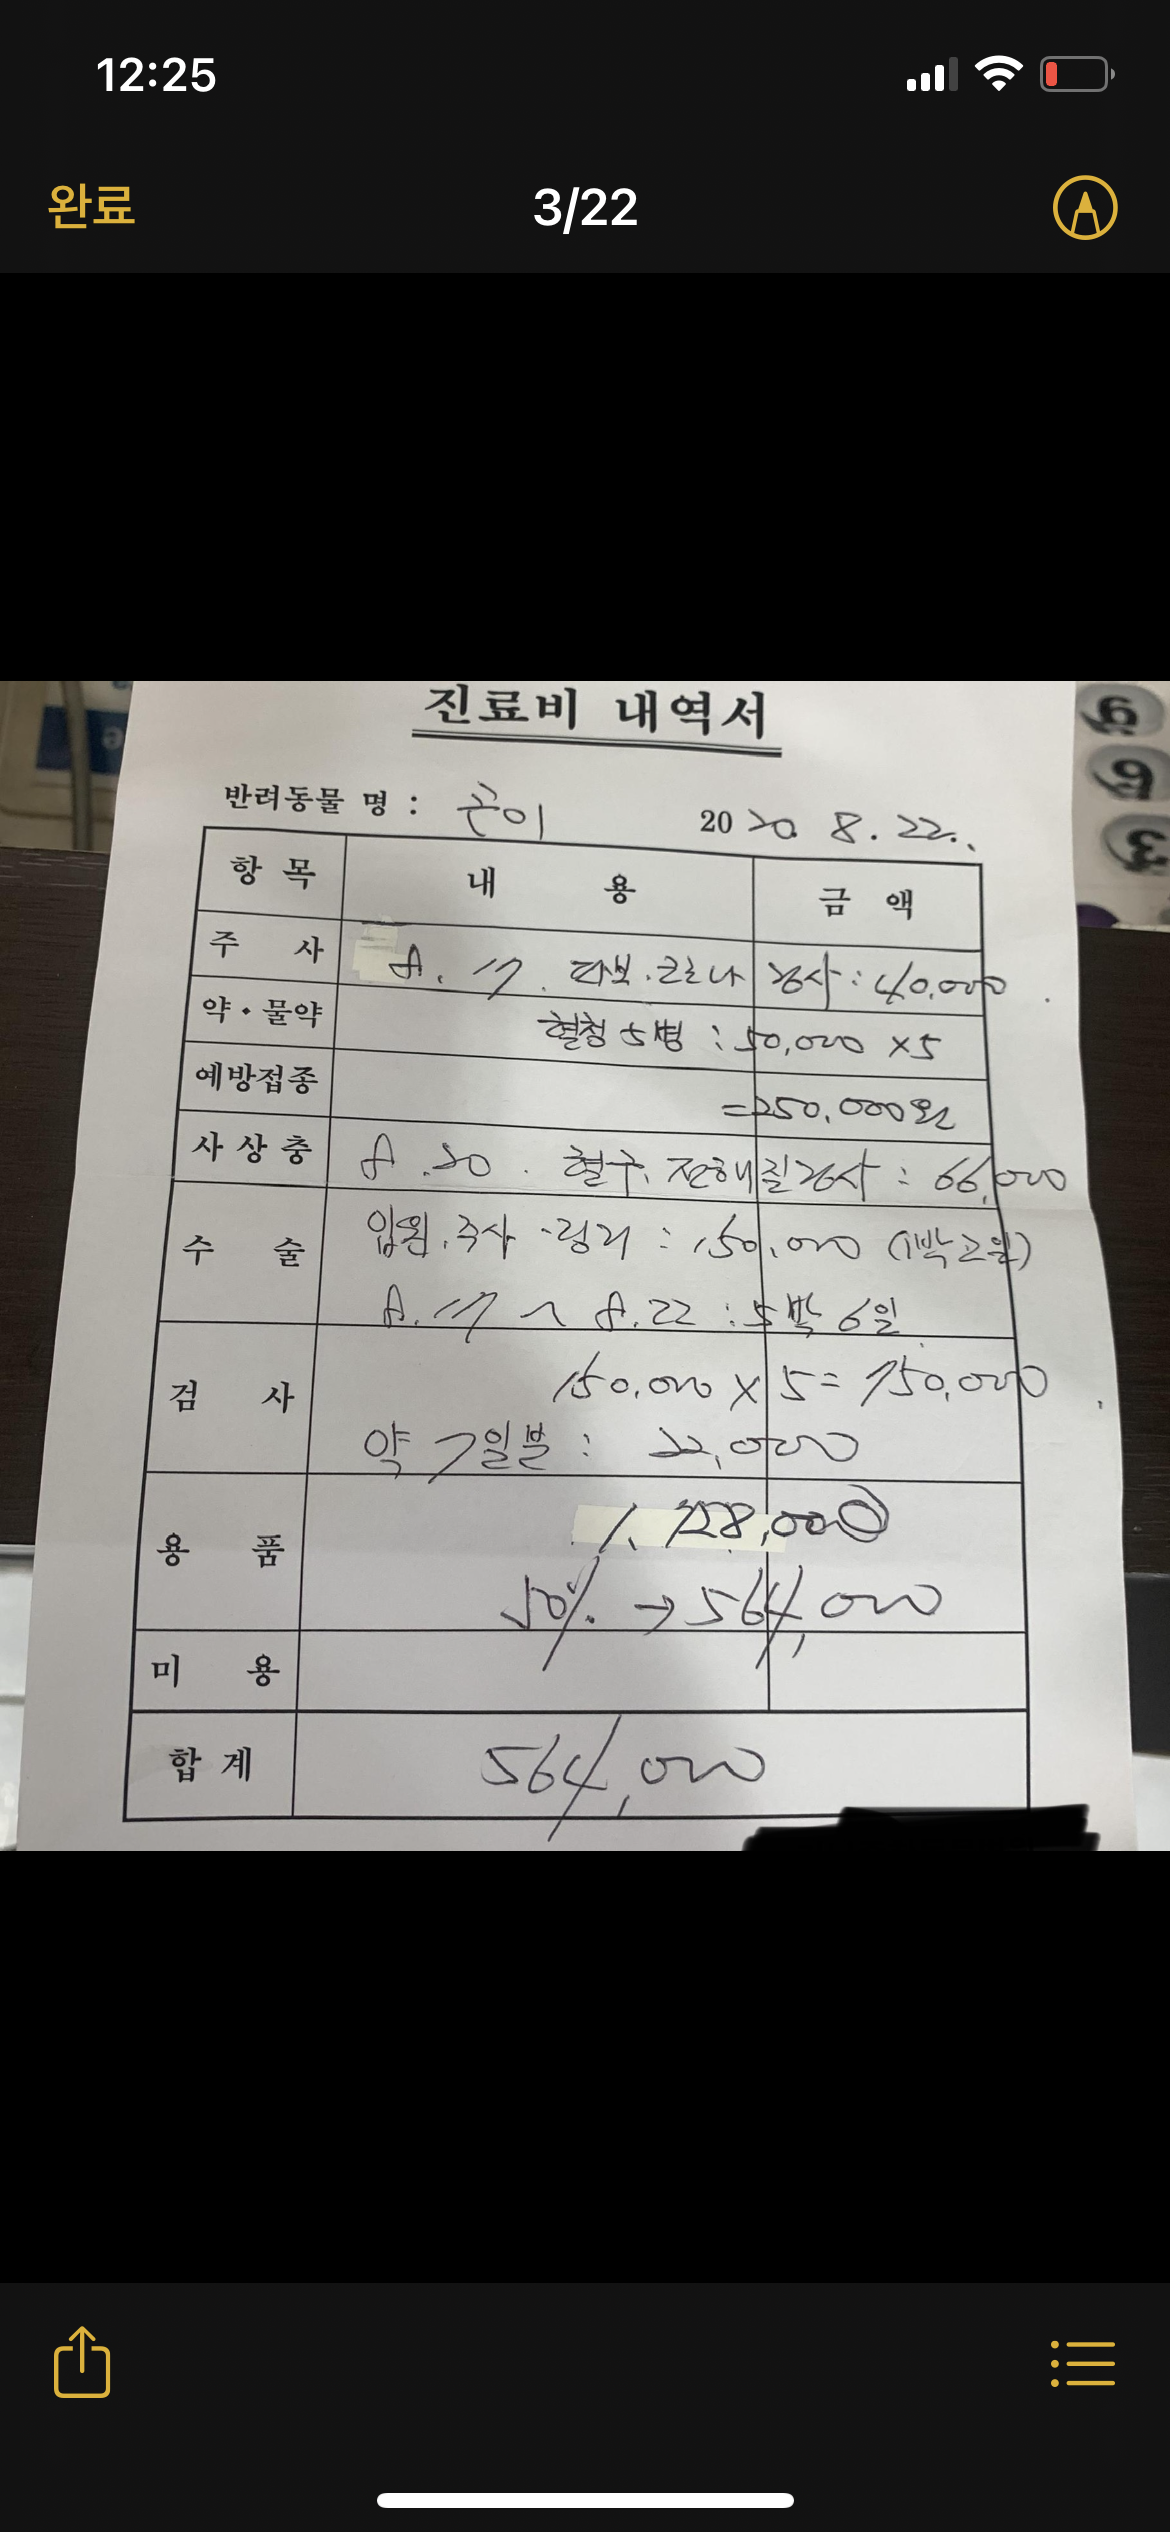 12:25
완료 3/22
진료비 내역서
반려동물 명 : 곤이 2020. 8. 22.
항 목 내 용 금 액
주 사 8. 17. 파보.코로나 검사 : 40,000
약·물약 혈청 5병 : 50,000 x5
예방접종 =250,000원
사상충 8. 20. 혈구, 전해질검사 : 66,000
수 술 입원.주사·링거 : 150,000 (1박2일)
8. 17 ~ 8. 22 : 5박 6일
검 사 150,000 x 5 = 750,000
약 7일분 : 22,000
용 품 1,128,000
50% → 564,000
미 용
합 계 564,000